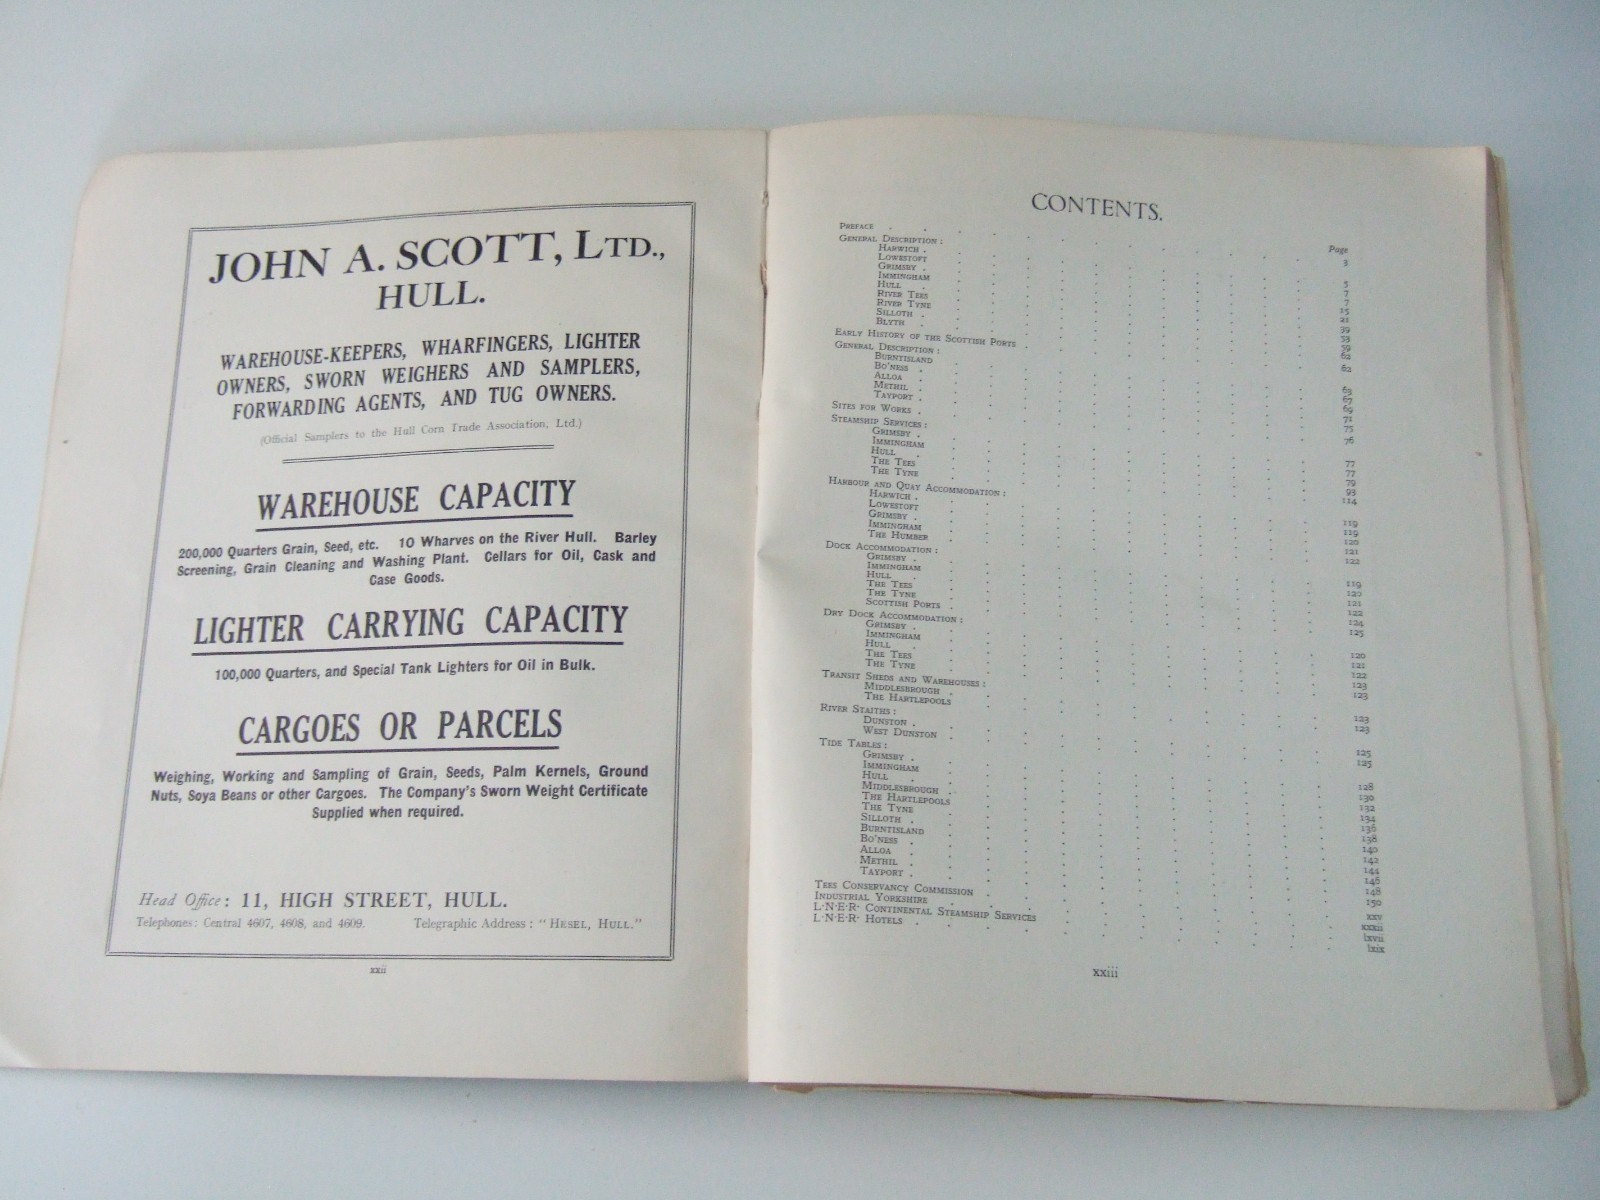 JOHN A. SCOTT, LTD.,
HULL.
WAREHOUSE-KEEPERS, WHARFINGERS, LIGHTER
OWNERS, SWORN WEIGHERS AND SAMPLERS,
FORWARDING AGENTS, AND TUG OWNERS.
(Official Samplers to the Hull Corn Trade Association, Ltd.)
WAREHOUSE CAPACITY
200,000 Quarters Grain, Seed, etc. 10 Wharves on the River Hull. Barley
Screening, Grain Cleaning and Washing Plant. Cellars for Oil, Cask and
Case Goods.
LIGHTER CARRYING CAPACITY
100,000 Quarters, and Special Tank Lighters for Oil in Bulk.
CARGOES OR PARCELS
Weighing, Working and Sampling of Grain, Seeds, Palm Kernels, Ground
Nuts, Soya Beans or other Cargoes. The Company's Sworn Weight Certificate
Supplied when required.
Head Office: 11, HIGH STREET, HULL.
Telephones: Central 4607, 4608, and 4609. Telegraphic Address: "HESEL, HULL."
xxii
CONTENTS.
Page
PREFACE 3
GENERAL DESCRIPTION:
HARWICH 5
LOWESTOFT 7
GRIMSBY 7
IMMINGHAM 15
HULL 21
RIVER TEES 39
RIVER TYNE 53
SILLOTH 59
BLYTH 62
EARLY HISTORY OF THE SCOTTISH PORTS 62
GENERAL DESCRIPTION:
BURNTISLAND 63
BO'NESS 67
ALLOA 69
METHIL 71
TAYPORT 75
SITES FOR WORKS 76
STEAMSHIP SERVICES:
GRIMSBY 77
IMMINGHAM 77
HULL 79
THE TEES 95
THE TYNE 114
HARBOUR AND QUAY ACCOMMODATION:
HARWICH 119
LOWESTOFT 119
GRIMSBY 120
IMMINGHAM 121
THE HUMBER 122
DOCK ACCOMMODATION:
GRIMSBY 119
IMMINGHAM 120
HULL 121
THE TEES 122
THE TYNE 124
SCOTTISH PORTS 125
DRY DOCK ACCOMMODATION:
GRIMSBY 120
IMMINGHAM 121
HULL 122
THE TEES 123
THE TYNE 123
TRANSIT SHEDS AND WAREHOUSES:
MIDDLESBROUGH 123
THE HARTLEPOOLS 123
RIVER STAITHS:
DUNSTON 125
WEST DUNSTON 125
TIDE TABLES:
GRIMSBY 128
IMMINGHAM 130
HULL 132
MIDDLESBROUGH 134
THE HARTLEPOOLS 136
THE TYNE 138
SILLOTH 140
BURNTISLAND 142
BO'NESS 144
ALLOA 146
METHIL 148
TAYPORT 150
TEES CONSERVANCY COMMISSION xxv
INDUSTRIAL YORKSHIRE xxxii
L·N·E·R· CONTINENTAL STEAMSHIP SERVICES lxvii
L·N·E·R· HOTELS lxix
xxiii